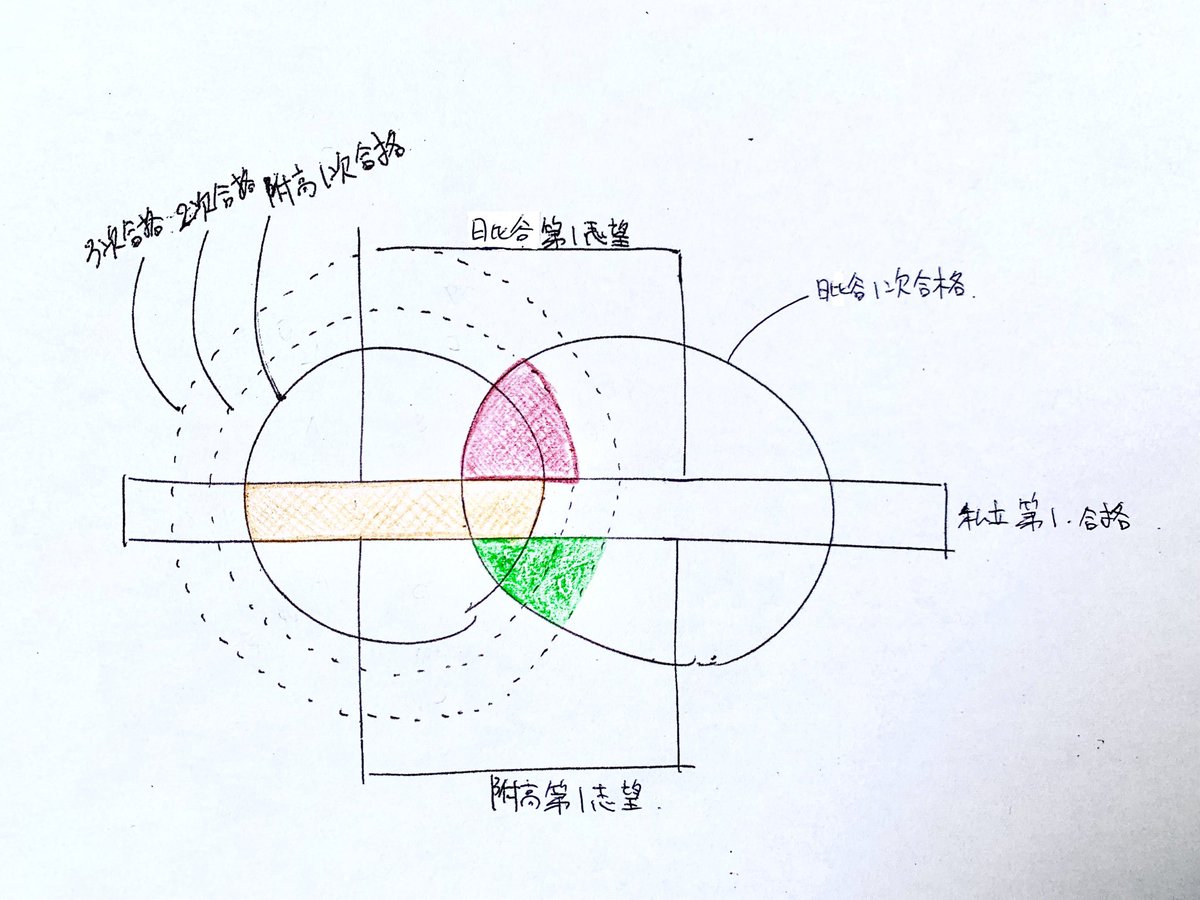 3次合格
2次合格
附高1次合格
日比谷第1志望
日比谷1次合格
私立第1.合格
附高第1志望